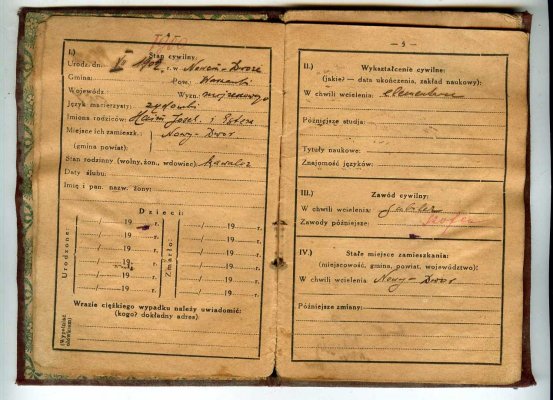 I.) Stan cywilny:
Urodz. dn. VI 1902 r. w Nowen-Dworze
Gmina: Pow. Warszawski
Wojewódz. Wyzn. mojżeszowego
Język macierzysty: żydowski
Imiona rodziców: Josek i Estera
Miejsce ich zamieszk.: Nowy-Dwór
(gmina powiat):
Stan rodzinny (wolny, żon., wdowiec) kawaler
Daty ślubu:
Imię i pan. nazw. żony:
Dzieci:
Urodzone: Zmarło:
....../......19......r. ....../......19......r.
....../......19......r. ....../......19......r.
....../......19......r. ....../......19......r.
....../......19......r. ....../......19......r.
....../......19......r. ....../......19......r.
....../......19......r. ....../......19......r.
Wrazie ciężkiego wypadku należy uwiadomić:
(kogo? dokładny adres)
(Wypełniać ołówkiem)
— 5 —
II.) Wykształcenie cywilne:
(jakie? — data ukończenia, zakład naukowy):
W chwili wcielenia:
Późniejsze studja:
Tytuły naukowe:
Znajomość języków:
III.) Zawód cywilny:
W chwili wcielenia:
Zawody późniejsze: Szofer
IV.) Stałe miejsce zamieszkania:
(miejscowość, gmina, powiat, województwo):
W chwili wcielenia Nowy-Dwór
Późniejsze zmiany: